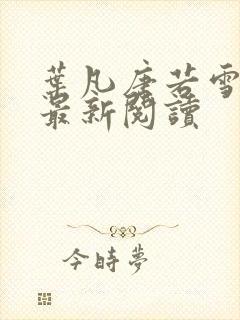 葉凡唐若雪
最新閱讀
今時夢